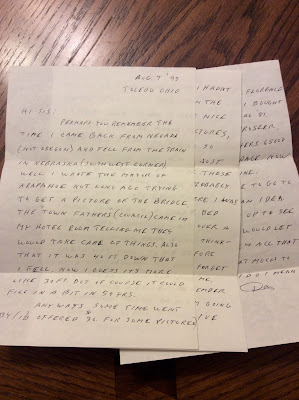 AUG. 7 '95
TOLEDO OHIO
HI SIS:
PERHAPS YOU REMEMBER THE
TIME I CAME BACK FROM NEVADA
(NOT OREGON) AND FELL FROM THE TRAIN
IN NEBRASKA (SOUTHWEST CORNER)
WELL I WROTE THE MAYOR OF
ARAPAHOE NOT LONG AGO TRYING
TO GET A PICTURE OF THE BRIDGE
THE TOWN FATHERS (COUNCIL) CAME IN
MY HOTEL ROOM TELLING ME THEY
WOULD TAKE CARE OF THINGS, ALSO
THAT IT WAS 40 FT DOWN THAT
I FELL. NOW I GUESS IT'S MORE
LIKE 30 FT BUT OF COURSE IT COULD
FILL ON A BIT IN 59 YRS.
ANY WAYS SOME TIME WENT
BY OFFERED FOR SOME PICTURES
I HADN'T
THE
NICE
SO
JUST
THESE
BED
OVER A
THINK-
FORE
FORGET
ME
EMBER
GOING
I'VE
FLORENCE
I BOUGHT
AL 81
COULD
NOW
INE.
TO GO TO
AN IDEA
UP TO SEE
WOULD LET
ALL THAT
MUCH TO
DO I MEAN